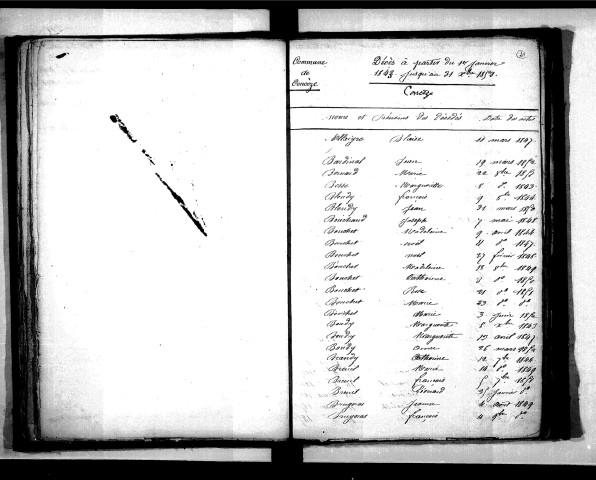 Commune
de
Concèze
Décès à partir du 1er janvier
1843 jusqu'au 31 Xbre 1852.
Concèze
noms et Prénoms des Décédés Date des actes
Allaigre Blaise 11 mars 1847.
Bardinal Jean 19 mars 1852
Bernard Marie 22 8bre 1853
Besse Marguerite 8 do 1843
Blondy françois 9 1844
Blondy Jean 31 mars
Bouchaud Joseph 7 mai 1848
Bouchet Madelaine 9 avril 1844
Bouchet noël 4 do 1847.
Bouchet noël 27 février 1848
Bouchet Madelaine 18 8bre 1849
Bouchet Catherine do
Bouchet Rose 21 do
Bouchet Marie 23 do do
Bouchet Marie 3 juin
Boudy Marguerite 8 Xbre 1843
Boudy Marguerite 13 avril 1847
Boudy 26 mars
Catherine 12 7bre 1846
Breuil Marie 14 do 1849
Breuil françois 5 7bre
Breuil Léonard janvier
Brugeras Jeanne 4 avril 1849
Brugeras françois 4 do